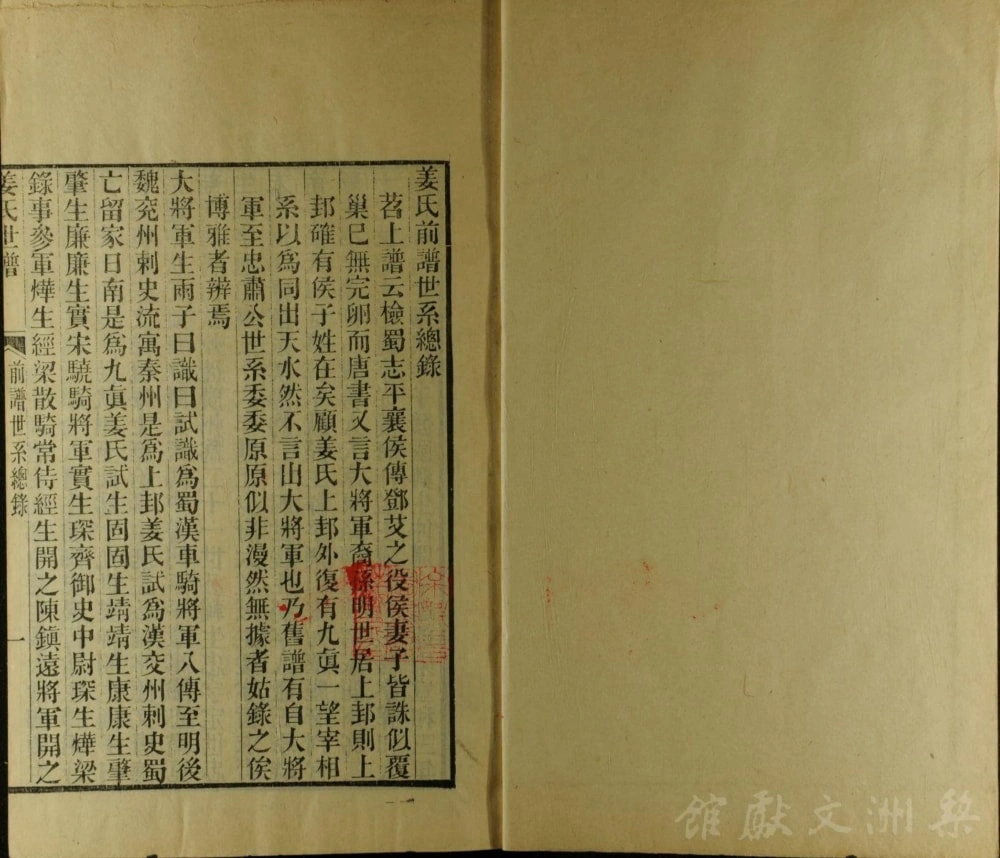 姜氏前譜世系總錄
苕上譜云檢蜀志平襄侯傳鄧艾之役侯妻子皆誅似覆
巢已無完卵而唐書又言大將軍裔孫明世居上邽則上
邽確有侯子姓在矣顧姜氏上邽外復有九眞一望宰相
系以爲同出天水然不言出大將軍也乃舊譜有自大將
軍至忠肅公世系委委原原似非漫然無據者姑錄之俟
博雅者辨焉
大將軍生兩子曰識曰試識爲蜀漢車騎將軍入傳至明後
魏兖州刺史流寓秦州是爲上邽姜氏試爲漢交州刺史蜀
亡留家日南是爲九眞姜氏試生固固生靖靖生康康生肇
肇生廉廉生實宋驍騎將軍實生琛齊御史中尉琛生燁梁
錄事參軍燁生經梁散騎常侍經生開之陳鎭遠將軍開之
姜氏世譜
前譜世系總錄
一
梨洲文獻館